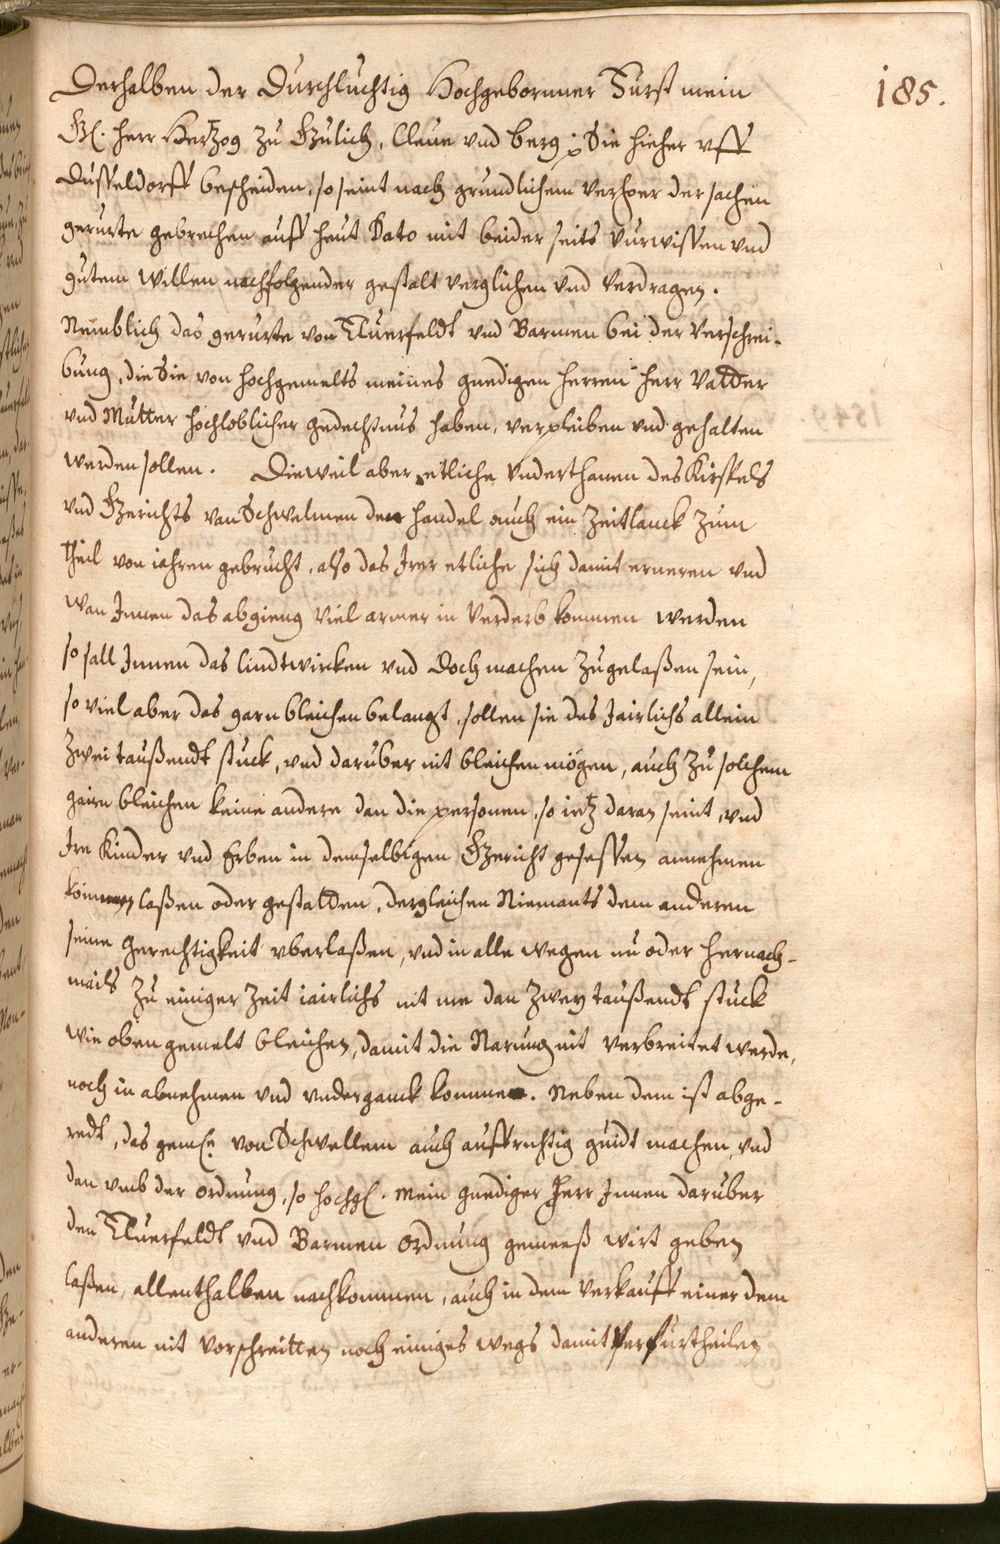 185.
Derhalben der Durchluchtig Hochgebornner Furst mein
G. herr Hertzog zu Gulich, Cleue vnd berg, Sie hieher vff
Dusseldorff bescheiden, so seint nach grundlichem verhoer der sachen
gerurte gebrechen auff heut Dato mit beider seits vurwissen vnd
gutem willen nachfolgender gestalt verglichen vnd verdragen.
Nemblich das gerurte von Eluerfeldt vnd Barmen bei der verschrei-
bung, die Sie von hochgemelts meines gnedigen herren herr Vatter
vnd Mutter hochloblicher gedechtnus haben, verpleiben vnd gehalten
werden sollen. Dieweil aber etliche Vnderthanen des Kirspels
vnd Gerichts van Schwelmen den handel auch ein Zeitlanck zum
theil von iahren gebrucht, also das Irer etliche sich damit erneren vnd
wan Innen das abgieng viel armer in verderb kommen werden
so sall Innen das lindtwircken vnd Doch machen zugelaßen sein,
so viel aber das garn bleichen belangt, sollen sie des Jairlichs allein
Zwei taußendt stuck, vnd daruber nit bleichen mögen, auch zu solchem
gairn bleichen keine andere dan die personen, so ietz daran seint, vnd
Ire Kinder vnd Erben in demselbigen Gericht gesessen annehmen
laßen oder gestatten, dergleichen Niemants dem anderen
seine Gerechtigkeit vberlaßen, vnd in alle wegen nu oder hernach-
mails zu einiger Zeit iairlichs nit me dan Zwey taußendt stuck
wie oben gemelt bleichen, damit die Narung nit verbreitet werde,
noch in abnehmen vnd vnderganck kommen. Neben dem ist abge-
redt, das gemle. von Schwellem auch auffrichtig guidt machen, vnd
den vmb der ordnung, so hochgl. mein gnediger Herr Innen daruber
den Eluerfeldt vnd Barmen ordnung gemeeß wirt geben
laßen, allenthalben nachkommen, auch in dem verkauff einer dem
anderen nit vorschreitten noch einiges wegs damit verfurtheilen